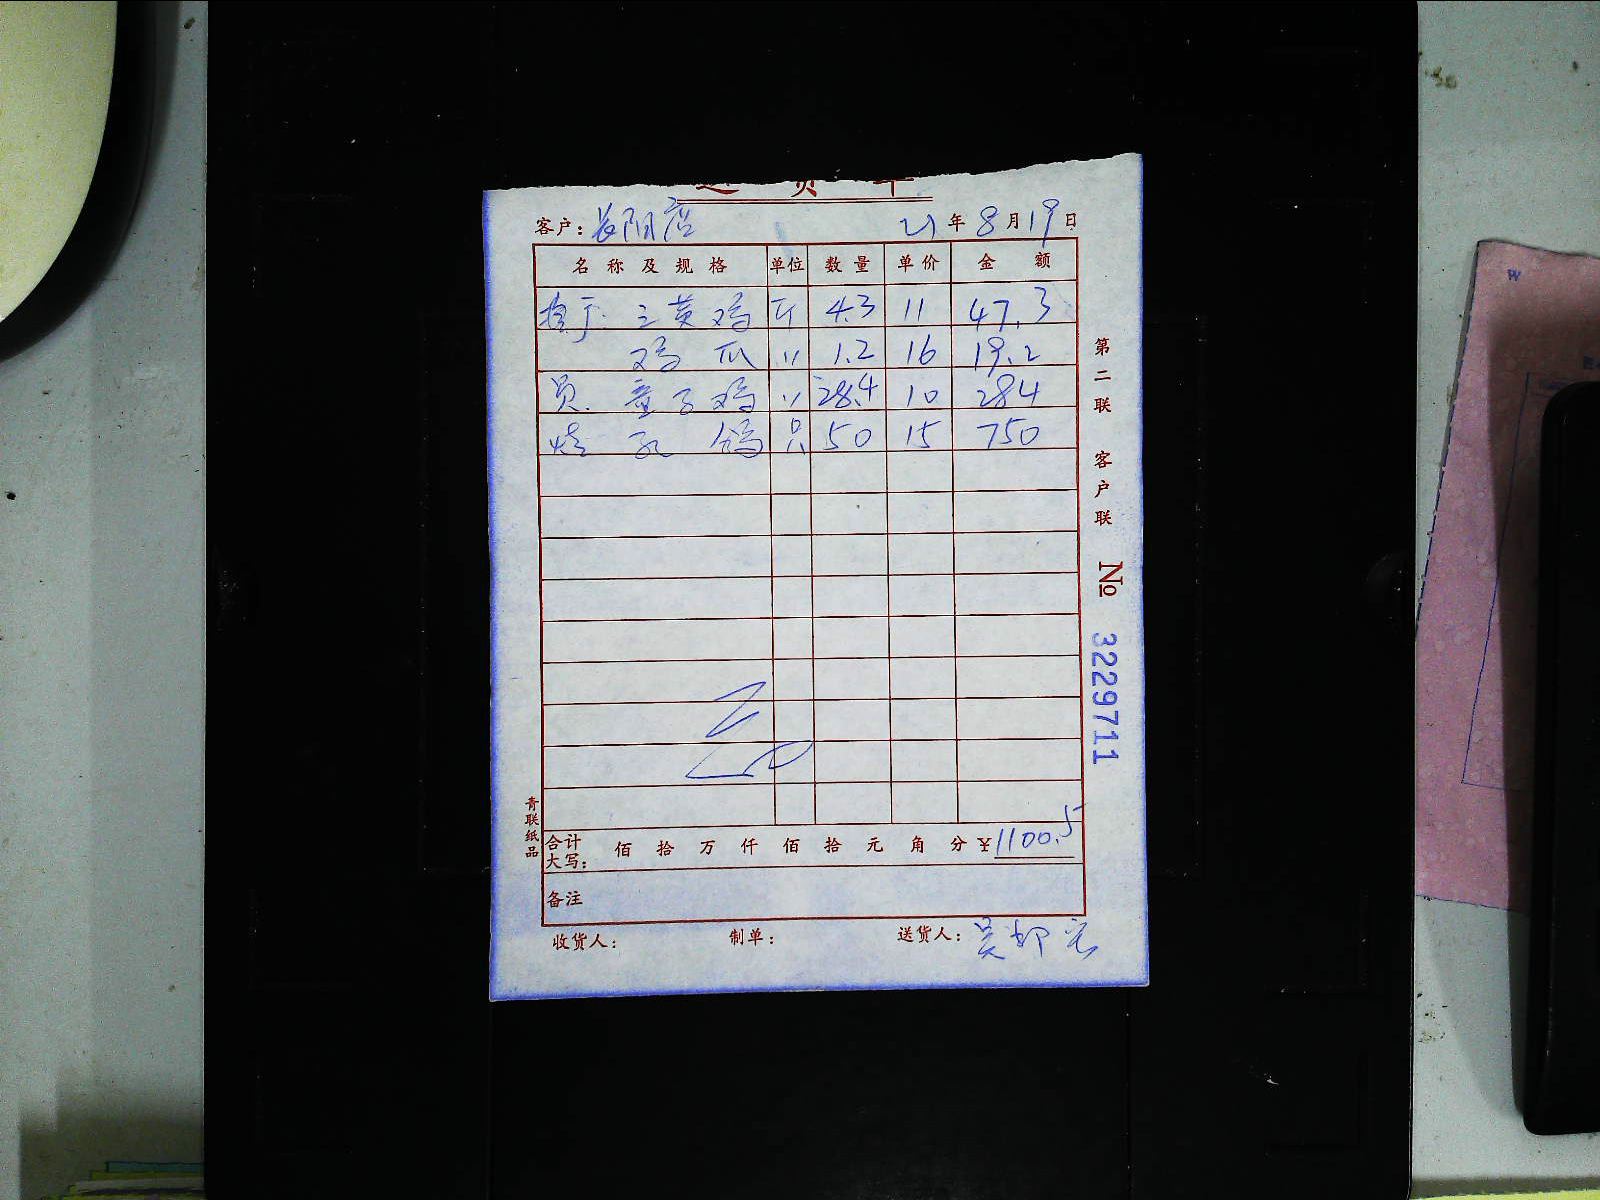 送 货 单
客户：长阳店 21年8月19日
名称及规格 单位 数量 单价 金额
三黄鸡 斤 4.3 11 47.3
鸡爪 〃 1.2 16 19.2
员. 童子鸡 〃 28.4 10 284
烧 乳鸽 只 50 15 750
合计大写： 佰 拾 万 仟 佰 拾 元 角 分 ¥1100.5
备注
收货人： 制单： 送货人：吴
第二联 客户联
No 3229711
青联纸品